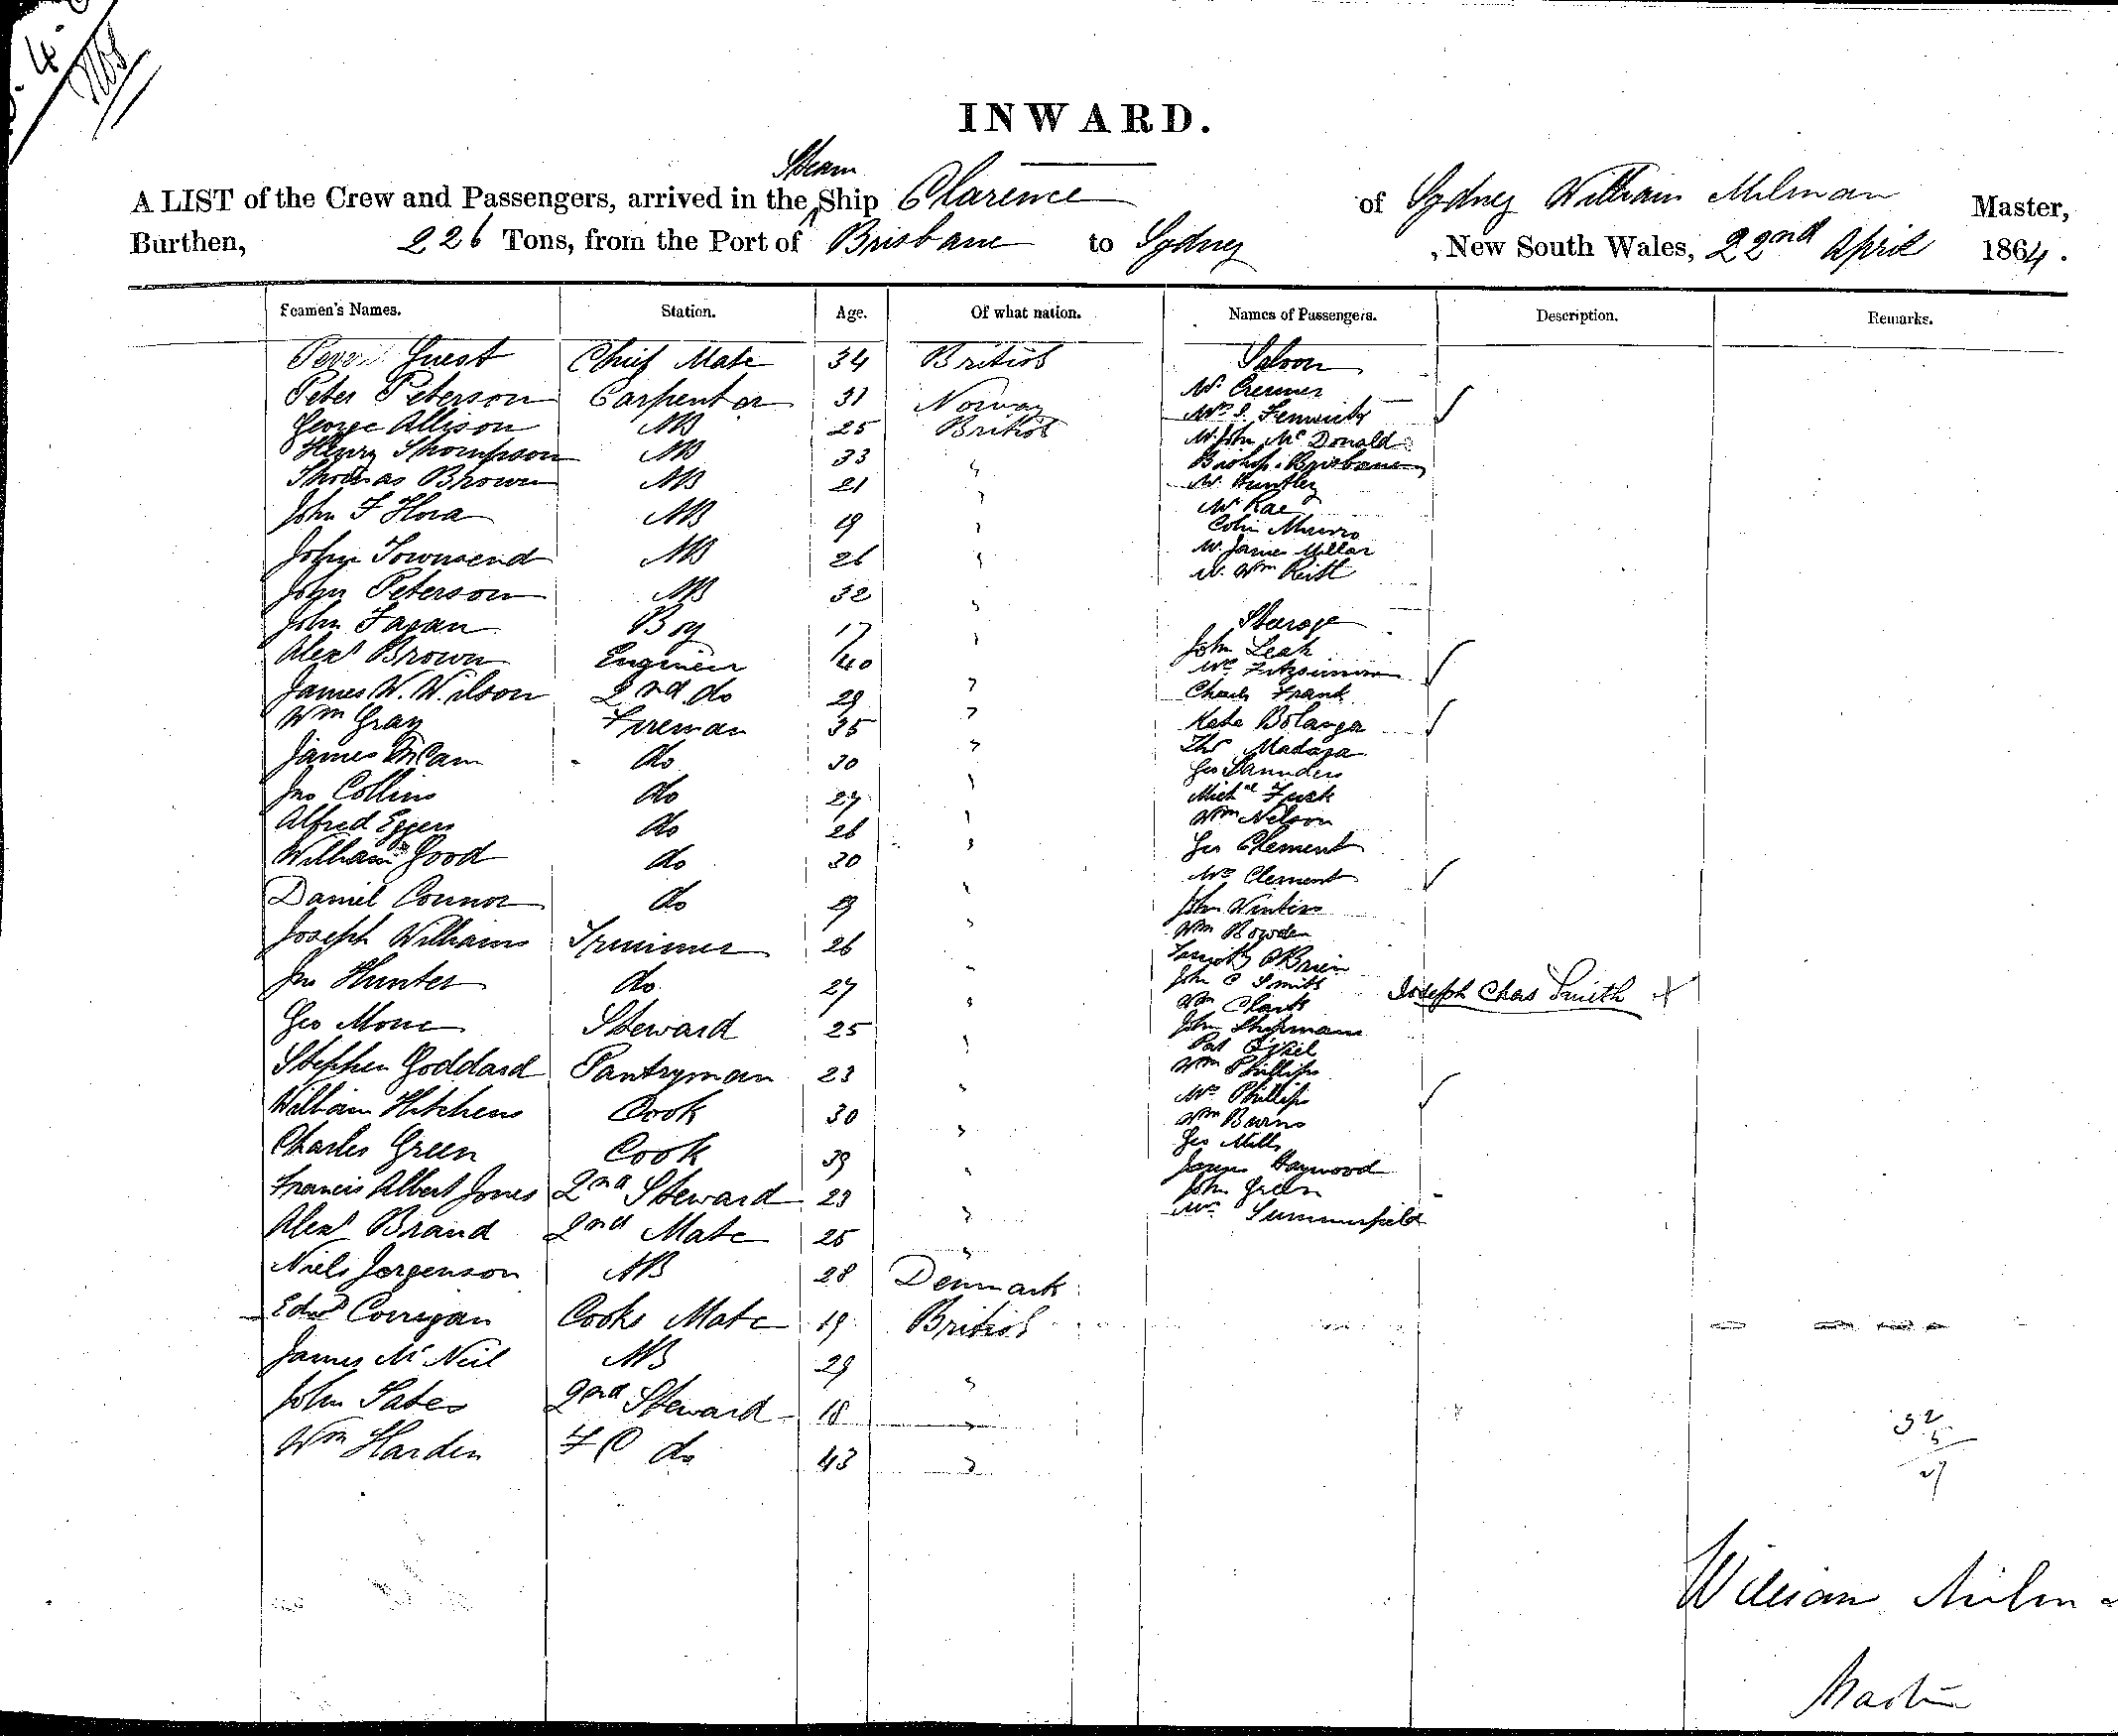 INWARD.
Steam
A LIST of the Crew and Passengers, arrived in the Ship Clarence of Sydney William Milman Master,
Burthen, 226 Tons, from the Port of Brisbane to Sydney , New South Wales, 22nd April 1864.
Seamen's Names. Station. Age. Of what nation. Names of Passengers. Description. Remarks.
Guest Chief Mate 34 British Saloon
Peter Peterson Carpenter 31 Norway Mr Cremer
George Allison AB 25 British Mrs J. Fenwick
Henry Thompson AB 33 " Mr John McDonald
Thomas Brown AB 21 " Bishop Brisbane
Mr Huntley
John F Hora AB 19 " Mr Rae
Colin Munro
John Townsend AB 26 " Mr James Millar
John Peterson AB 32 " Mr Wm
John Fagan Boy 17 " Steerage
Alexr Brown Engineer 40 " John Leah
Mrs Fitzsimmons
James W. Wilson 2nd do 29 " Charles Frank
Wm Gray Fireman 35 " Kate Bolanga
James McCam do 30 " Thos Madaga
Geo Saunders
Jno Collins do 27 " Michl
Alfred Eggers do 26 " Wm Nelson
William Good do 30 " Geo Clement
Mrs Clement
Daniel Connor do 19 " John Winters
Joseph Williams Trimmer 26 " Wm Bowden
Timothy O'Brien
Jno Hunter do 27 " John C Smith Joseph Chas Smith X
Wm Clark
Geo Mone Steward 25 " John Shipman
Pat
Stephen Goddard Pantryman 23 " Wm Phillips
Mrs Phillips
William Hitchens Cook 30 " Wm Burns
Charles Green Cook 39 " Geo Mills
James Haywood
Francis Albert Jones 2nd Steward 23 " John Green
Alexr Brand 2nd Mate 25 " Mrs Summerfield
Niels Jorgenson AB 28 Denmark
Edwd Corrigan Cooks Mate 19 British
James McNeil AB 29 "
John Tates 2nd Steward 18 "
Wm Harden F C do 43 "
32
5
27
William Milman
Master